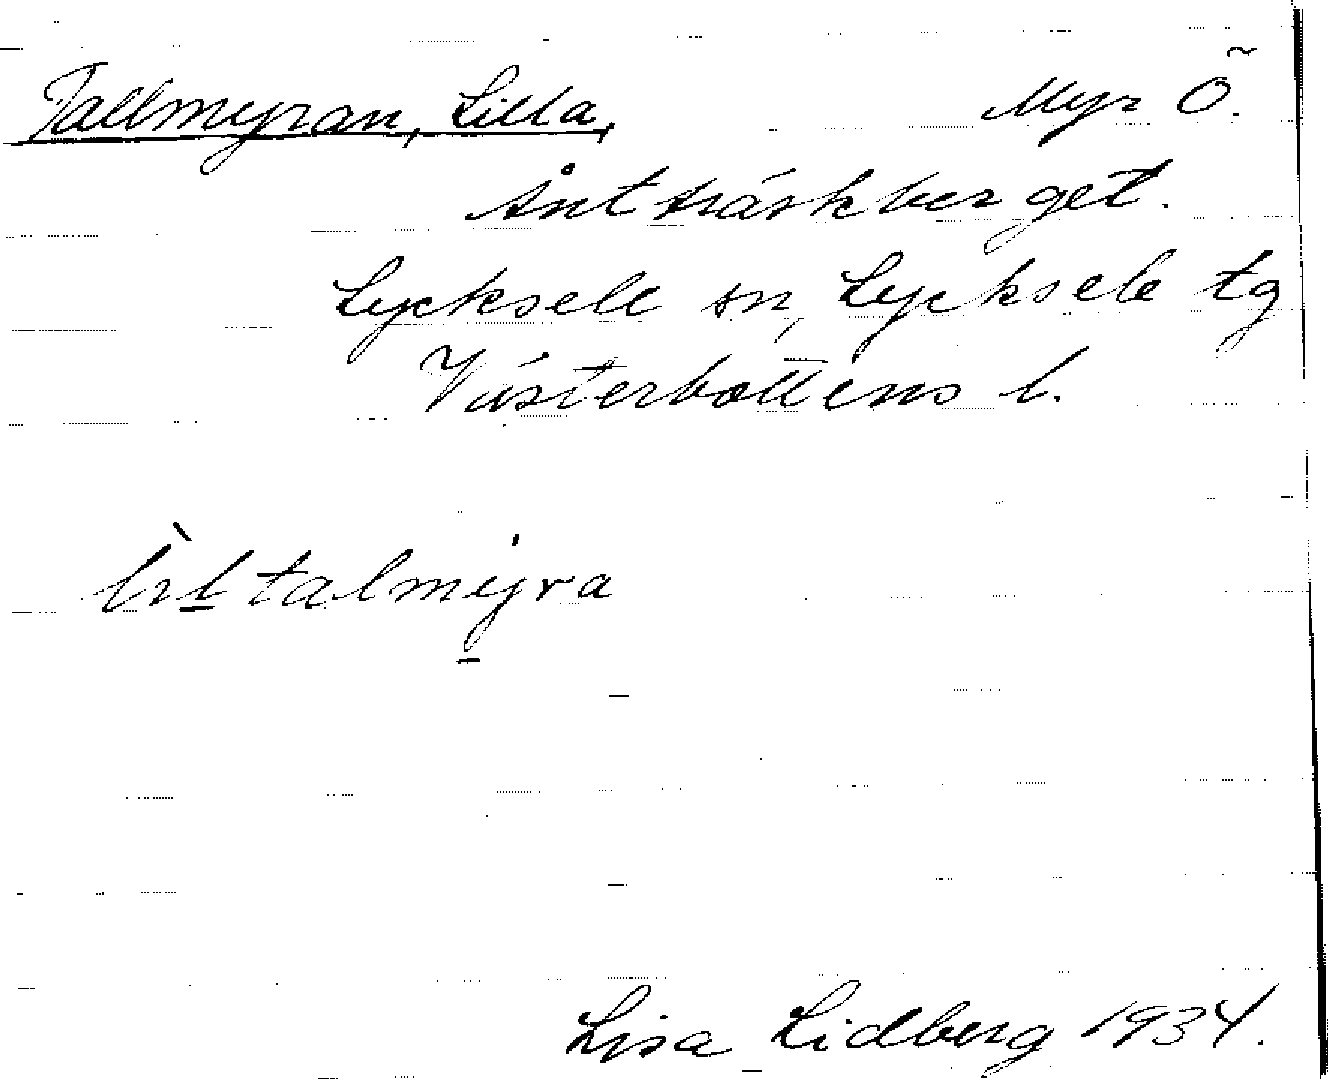 Tallmyran, Lilla, Myr Ö.
Åntträskberget.
Lycksele sn, Lycksele tg
Västerbottens l.
talmyra
Lisa Lidberg 1934.